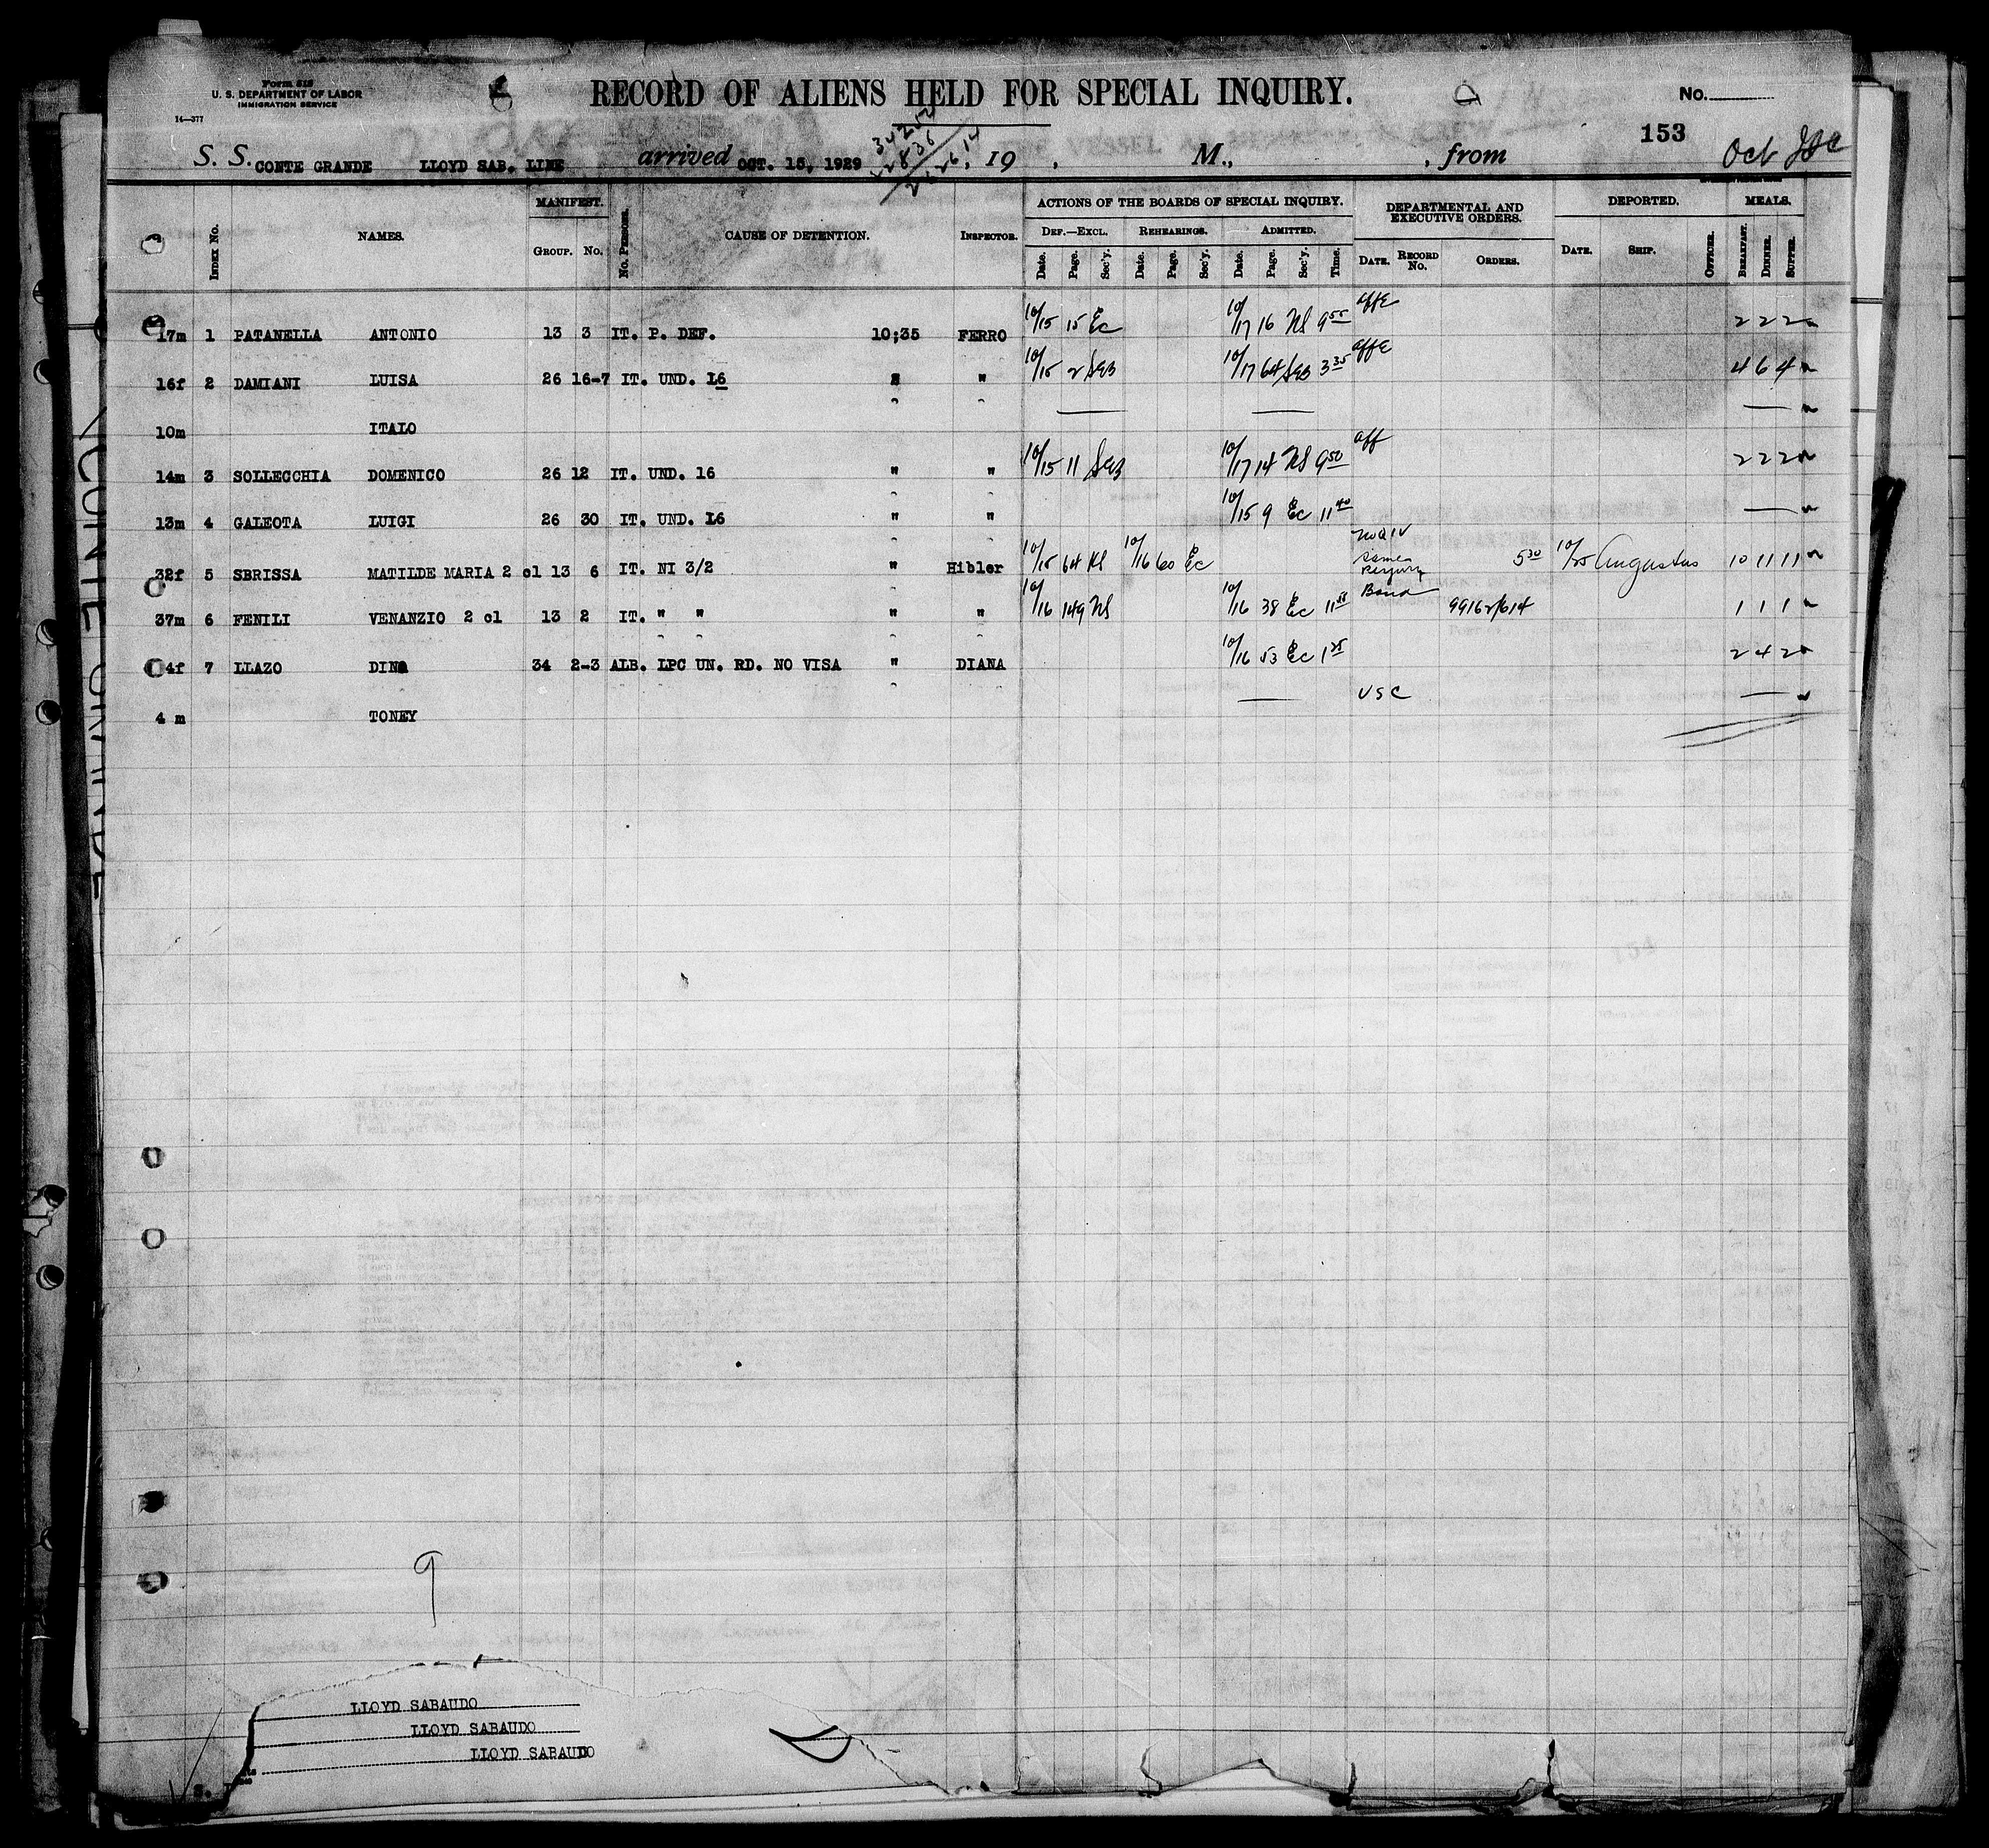 Form 518
U. S. DEPARTMENT OF LABOR
IMMIGRATION SERVICE
14—377
RECORD OF ALIENS HELD FOR SPECIAL INQUIRY.
No.
153
S. S. CONTE GRANDE LLOYD SAB. LINE arrived OCT. 15, 1929 , 19 , M., , from Oct
MANIFEST. ACTIONS OF THE BOARDS OF SPECIAL INQUIRY. DEPARTMENTAL AND EXECUTIVE ORDERS. DEPORTED. MEALS.
Index No. NAMES. GROUP. No. No. Persons. CAUSE OF DETENTION. INSPECTOR. DEF.—EXCL. REHEARINGS. ADMITTED.
Date. Page. Sec'y. Date. Page. Sec'y. Date. Page. Sec'y. Time. DATE. RECORD No. ORDERS. DATE. SHIP. OFFICER. BREAKFAST. DINNER. SUPPER.
17m 1 PATANELLA ANTONIO 13 3 IT. P. DEF. 10;35 FERRO 10/15 15 Ec 10/17 16 NS 9 55 affe 2 2 2
16f 2 DAMIANI LUISA 26 16-7 IT. UND. 16 " " 10/15 2 10/17 64 3 35 affe 4 6 4
10m ITALO — — —
14m 3 SOLLECCHIA DOMENICO 26 12 IT. UND. 16 " " 10/15 11 10/17 14 NS 9 50 aff 2 2 2
13m 4 GALEOTA LUIGI 26 30 IT. UND. 16 " " 10/15 9 Ec 11 40 —
32f 5 SBRISSA MATILDE MARIA 2 cl 13 6 IT. NI 3/2 " Hibler 10/15 64 NS 10/16 60 Ec 5 30 10/25 Augustus 10 11 11
37m 6 FENILI VENANZIO 2 cl 13 2 IT. " " " " 10/16 149 NS 10/16 38 Ec Bond 99162/614 1 1 1
4f 7 LLAZO DINA 34 2-3 ALB. LPC UN. RD. NO VISA " DIANA 10/16 53 Ec 1 25 2 4 2
4 m TONEY — USC —
9
LLOYD SABAUDO
LLOYD SABAUDO
LLOYD SABAUDO